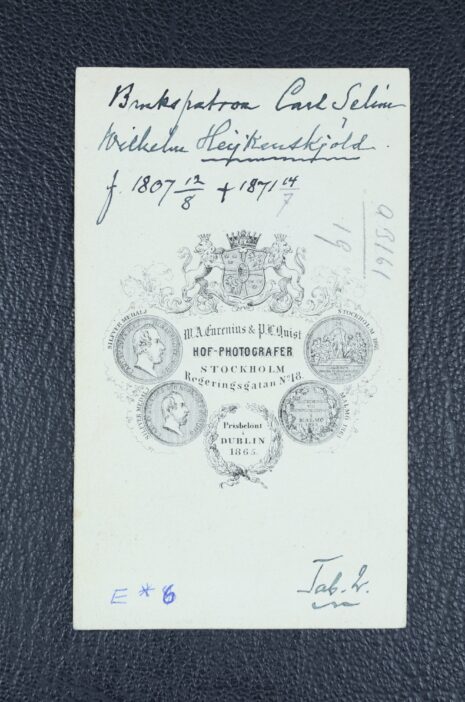 Brukspatron Carl Selim
Wilhelm Heijkenskjöld.
f. 1807 12/8 + 1871 14/7
19
19180
W. A. Eurenius & P. L. Quist
HOF-PHOTOGRAFER
STOCKHOLM
Regeringsgatan No 18.
SILFVER MEDALJ
STOCKHOLM 1866
SILFVER MEDALJ
MALMÖ 1865
Prisbelönt
i
DUBLIN
1865.
E * 6
Tab. 2.